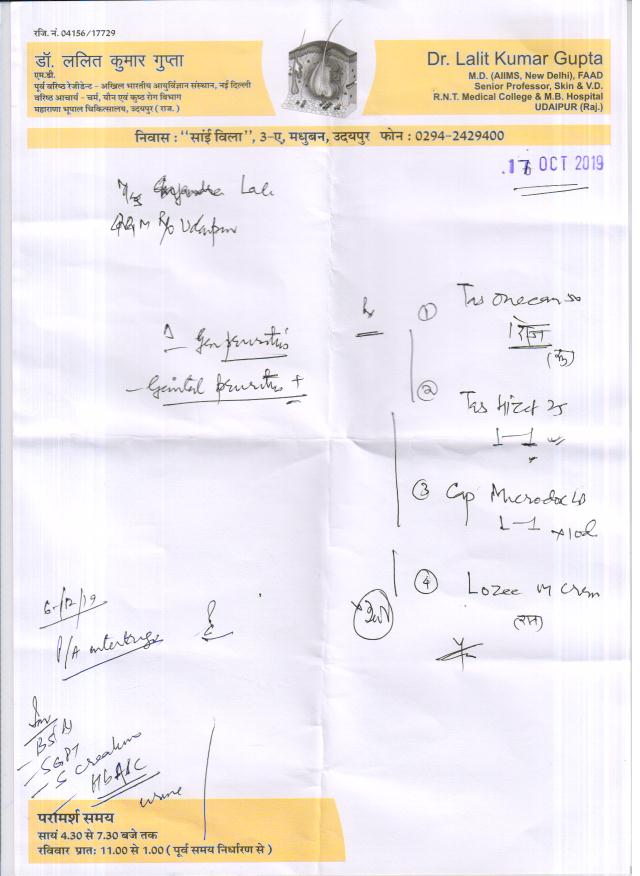 रजि. नं. 04156/17729
डॉ. ललित कुमार गुप्ता
एम.डी.
पूर्व वरिष्ठ रेजीडेन्ट - अखिल भारतीय आयुर्विज्ञान संस्थान, नई दिल्ली
वरिष्ठ आचार्य - चर्म, यौन एवं कुष्ठ रोग विभाग
महाराणा भूपाल चिकित्सालय, उदयपुर ( राज. )
Dr. Lalit Kumar Gupta
M.D. (AIIMS, New Delhi), FAAD
Senior Professor, Skin & V.D.
R.N.T. Medical College & M.B. Hospital
UDAIPUR (Raj.)
निवास : "सांई विला", 3-ए, मधुबन, उदयपुर फोन : 0294-2429400
OCT 2019
Lal
R/o Udaipur
Gen pruritis
- Genital pruritis +
①
②
③ Cap Microdox
1-1 x10d
④ Lozee M Crem
6/12/19
intertrigo
- SGPT
- S Creatinine
HbA1C
urine
परामर्श समय
सायं 4.30 से 7.30 बजे तक
रविवार प्रातः 11.00 से 1.00 ( पूर्व समय निर्धारण से )